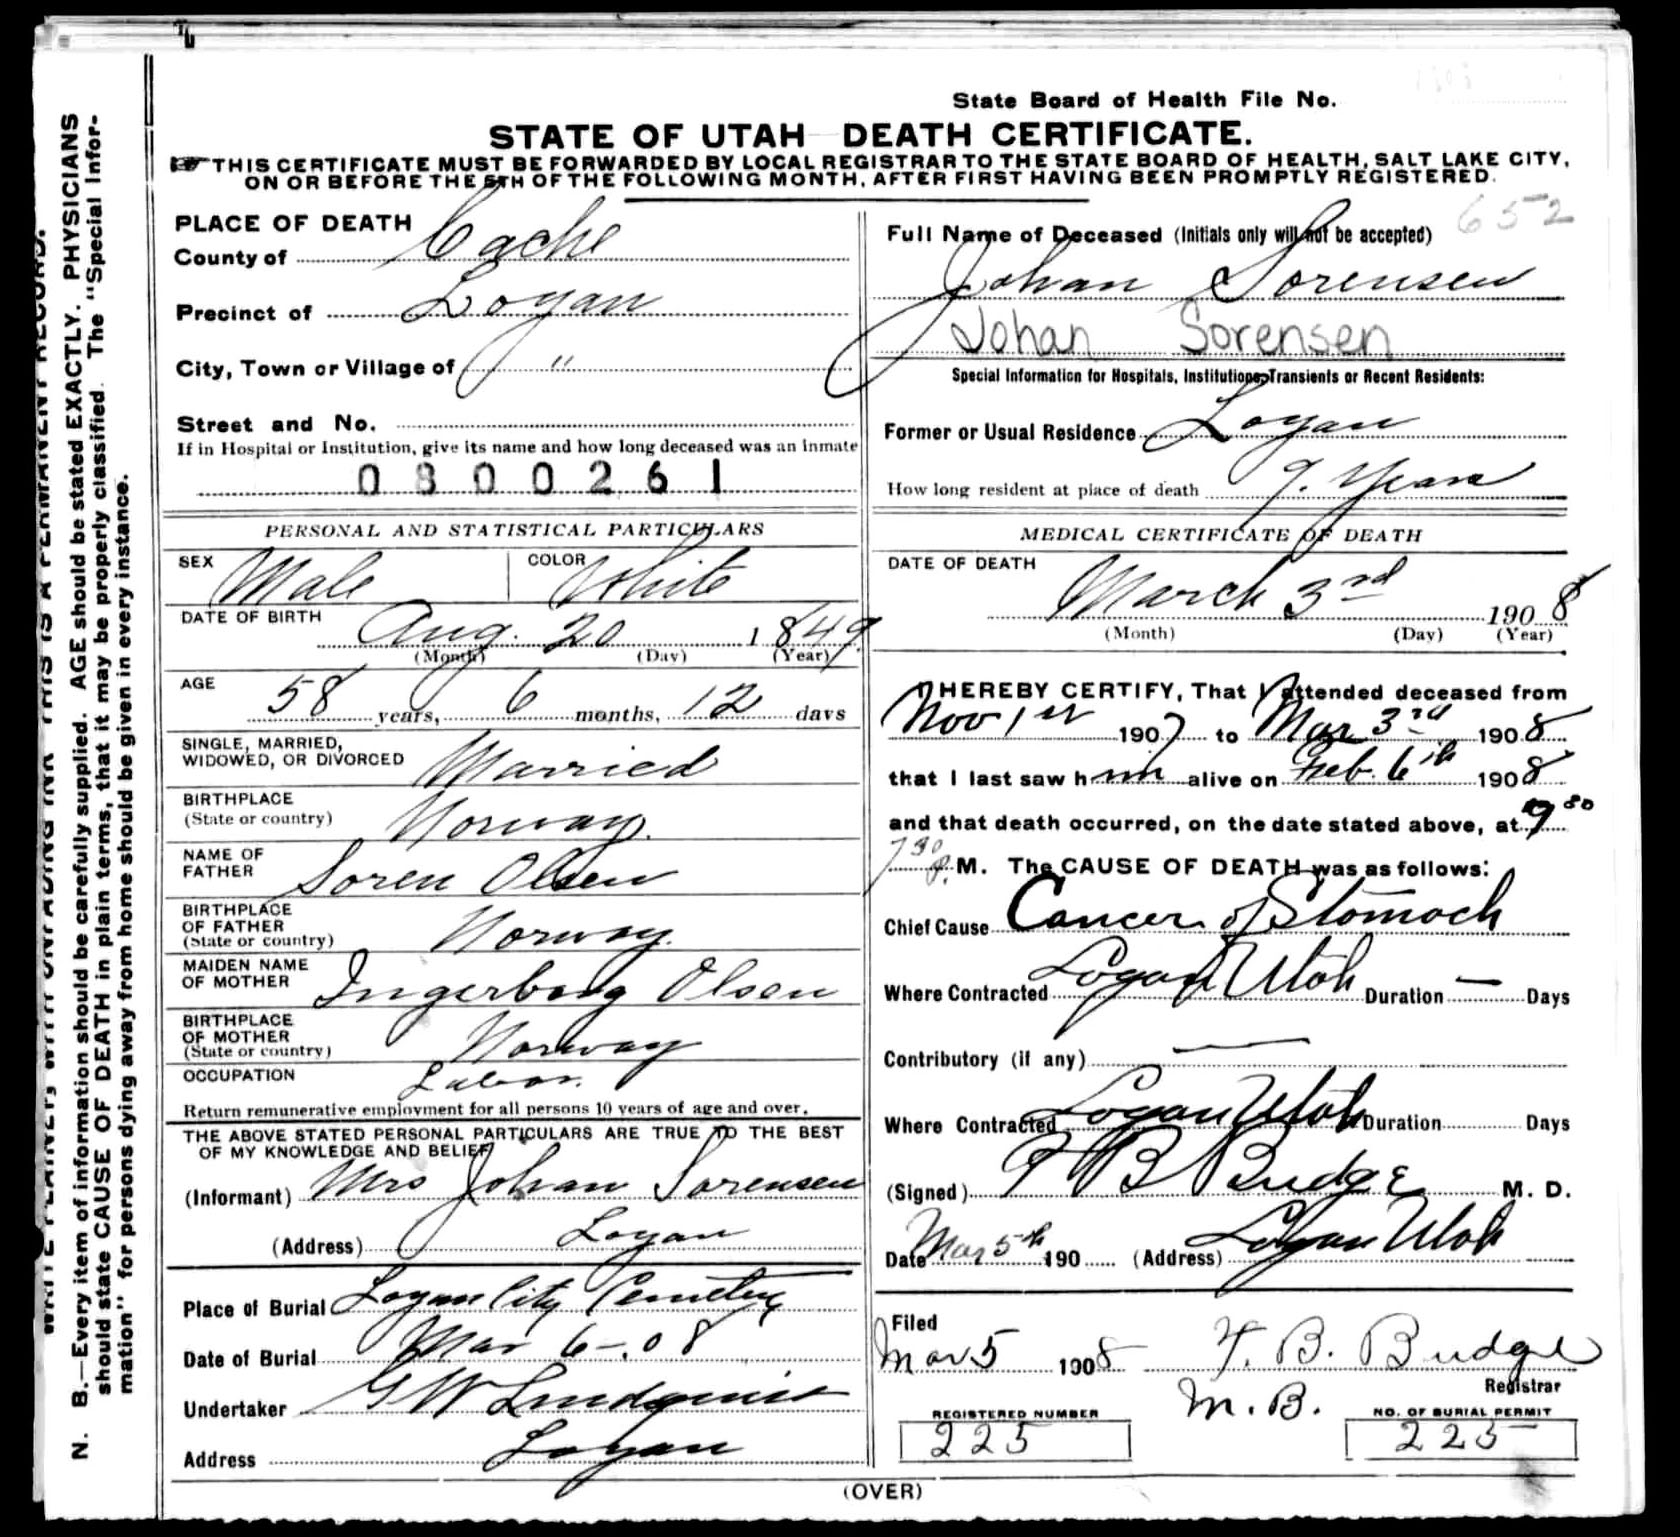 State Board of Health File No.
652
STATE OF UTAH DEATH CERTIFICATE.
THIS CERTIFICATE MUST BE FORWARDED BY LOCAL REGISTRAR TO THE STATE BOARD OF HEALTH, SALT LAKE CITY,
ON OR BEFORE THE 5TH OF THE FOLLOWING MONTH, AFTER FIRST HAVING BEEN PROMPTLY REGISTERED.
PLACE OF DEATH
County of Cache
Precinct of Logan
City, Town or Village of "
Street and No.
If in Hospital or Institution, give its name and how long deceased was an inmate
0800261
PERSONAL AND STATISTICAL PARTICULARS
SEX Male COLOR White
DATE OF BIRTH Aug. 20 1849
(Month) (Day) (Year)
AGE 58 years, 6 months, 12 days
SINGLE, MARRIED,
WIDOWED, OR DIVORCED Married
BIRTHPLACE
(State or country) Norway.
NAME OF
FATHER Soren Olsen
BIRTHPLACE
OF FATHER
(State or country) Norway.
MAIDEN NAME
OF MOTHER Ingerborg Olsen
BIRTHPLACE
OF MOTHER
(State or country) Norway
OCCUPATION Labor.
Return remunerative employment for all persons 10 years of age and over.
THE ABOVE STATED PERSONAL PARTICULARS ARE TRUE TO THE BEST
OF MY KNOWLEDGE AND BELIEF
(Informant) Mrs Johan Sorensen
(Address) Logan
Place of Burial Logan City Cemetery
Date of Burial Mar 6-.08
Undertaker G W Lindquist
Address Logan
Full Name of Deceased (Initials only will not be accepted)
Johan Sorensen
Johan Sorensen
Special Information for Hospitals, Institutions, Transients or Recent Residents:
Former or Usual Residence Logan
How long resident at place of death 9. Years
MEDICAL CERTIFICATE OF DEATH
DATE OF DEATH
March 3rd 1908
(Month) (Day) (Year)
I HEREBY CERTIFY, That I attended deceased from
Nov 1st 1907 to Mar 3rd 1908
that I last saw him alive on Feb. 6th 1908
and that death occurred, on the date stated above, at
7 30 P. M. The CAUSE OF DEATH was as follows:
Chief Cause Cancer of Stomach
Where Contracted Logan Utah Duration — Days
Contributory (if any) —
Where Contracted Logan Utah Duration Days
(Signed) F B Budge M. D.
Date Mar 5th 190 (Address) Logan Utah
Filed
Mar 5 1908 F. B. Budge
Registrar
M. B.
REGISTERED NUMBER
225
NO. OF BURIAL PERMIT
225
(OVER)
WRITE PLAINLY, WITH UNFADING INK—THIS IS A PERMANENT RECORD.
N. B.—Every item of information should be carefully supplied. AGE should be stated EXACTLY. PHYSICIANS
should state CAUSE OF DEATH in plain terms, that it may be properly classified. The "Special Infor-
mation" for persons dying away from home should be given in every instance.